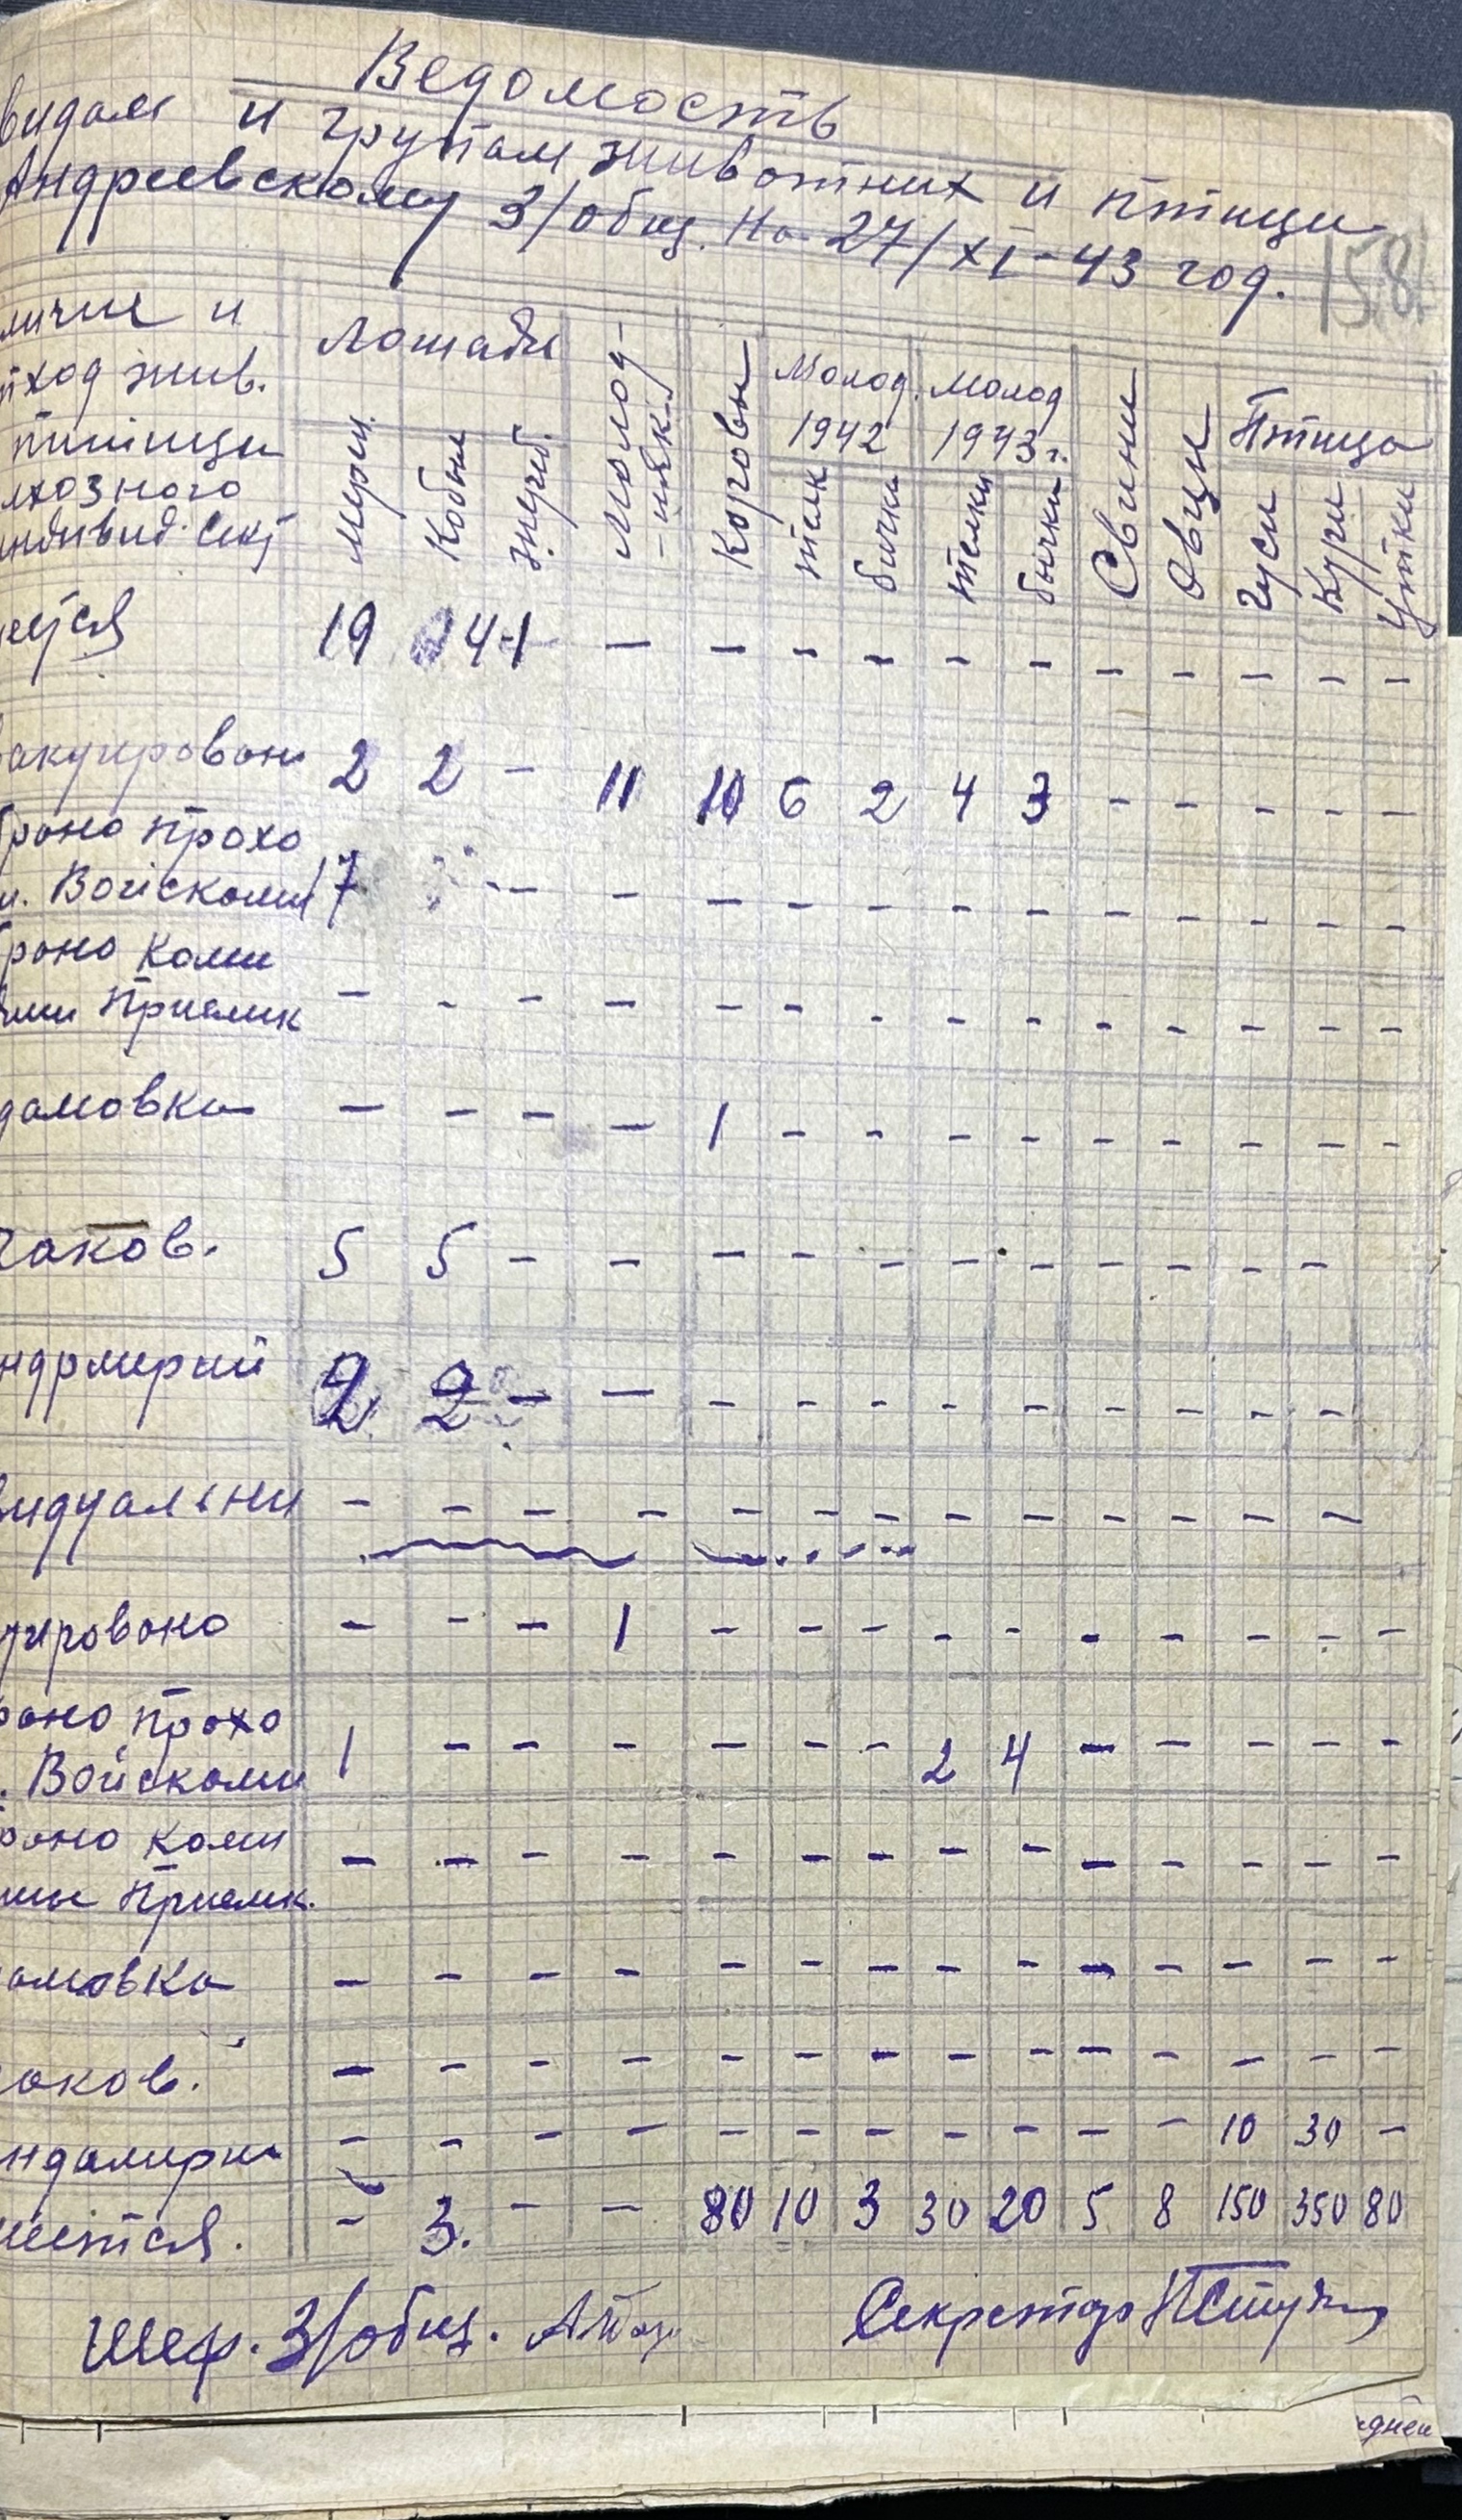 Ведомость
видам и групам животних и птици
Андреевскому З/общ. На 27/XI-43 год.
158
личие и
ход жив.
птици
хозного
индивид. сект
Лошади
Мерин.
Кобыли
жереб.
Молод-
-няк.
Коровы
Молод. 1942
телк
бички
Молод 1943 г.
телки
бычки
Свини
Овци
Птица
гуси
Кури
утки
ется 19 4 1 - - - - - - - - - - -
акуировано 2 2 - 11 10 6 2 4 3 - - - - -
рано прохо
Войсками 17 - - - - - - - - - - - -
рано коми
ями Приемк - - - - - - - - - - - - - -
домовка - - - - 1 - - - - - - - - -
гаков. 5 5 - - - - - - - - - - -
ндрмерий 2 2 - - - - - - - - - - -
видуални - - - - - - - - - - - - -
уировано - - - 1 - - - - - - - - - -
рано прохо
. Войсками 1 - - - - - - 2 4 - - - - -
рано коми
ями Приемк. - - - - - - - - - - - - - -
омовка - - - - - - - - - - - - - -
аков. - - - - - - - - - - - - - -
ндамери - - - - - - - - - - - 10 30 -
иется. - 3. - - 80 10 3 30 20 5 8 150 350 80
Шеф. З/общ.
Секретар
дней